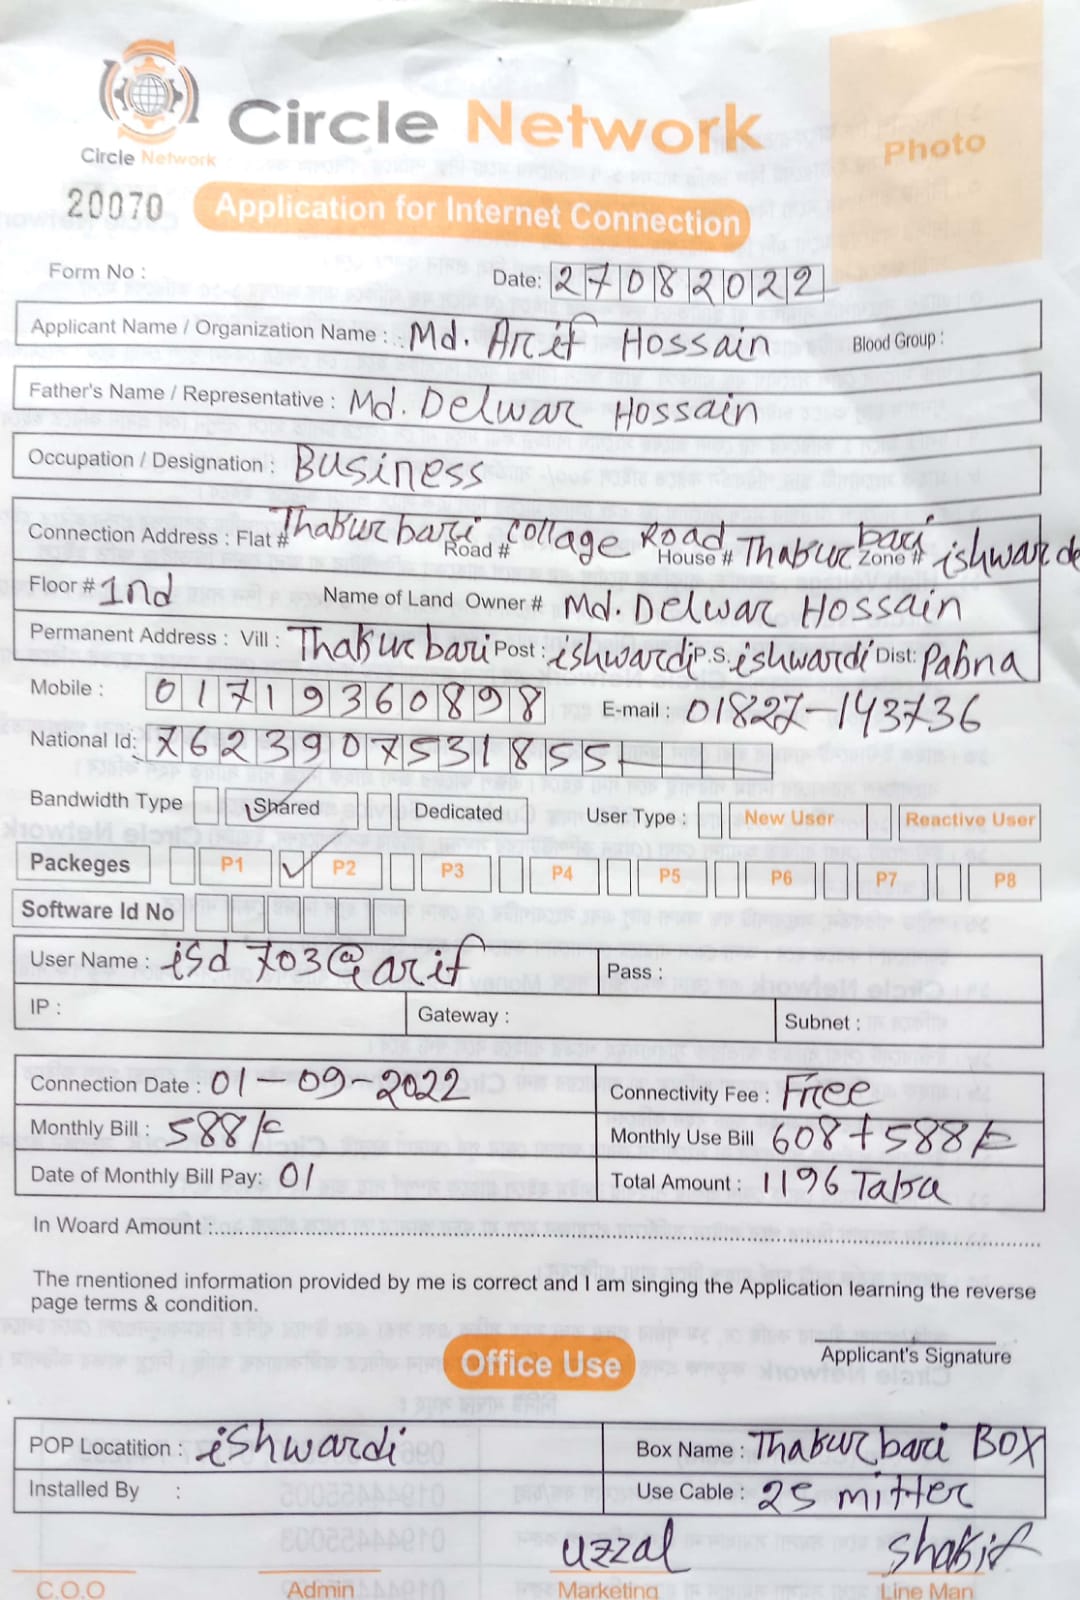 Circle Network
Circle Network
Photo
20070
Application for Internet Connection
Form No :
Date: 27082022
Applicant Name / Organization Name : Md. Arif Hossain Blood Group :
Father's Name / Representative : Md. Delwar Hossain
Occupation / Designation : Business
Connection Address : Flat # Thakur bari Road # collage Road House # Thakur bari Zone # ishwardi
Floor # 1nd Name of Land Owner # Md. Delwar Hossain
Permanent Address : Vill : Thakur bari Post : ishwardi P.S. ishwardi Dist: Pabna
Mobile : 01719360898 E-mail : 01827-143736
National Id: 7623907531855
Bandwidth Type Shared Dedicated User Type : New User Reactive User
Packeges P1 P2 P3 P4 P5 P6 P7 P8
Software Id No
User Name : isd703@arif Pass :
IP : Gateway : Subnet :
Connection Date : 01-09-2022 Connectivity Fee : Free
Monthly Bill : 588/= Monthly Use Bill 608+588/=
Date of Monthly Bill Pay: 01 Total Amount : 1196 Taka
In Woard Amount :
The mentioned information provided by me is correct and I am singing the Application learning the reverse
page terms & condition.
Applicant's Signature
Office Use
POP Locatition : ishwardi Box Name : Thakur bari BOX
Installed By : Use Cable : 25 mitter
uzzal shakif
C.O.O Admin Marketing Line Man